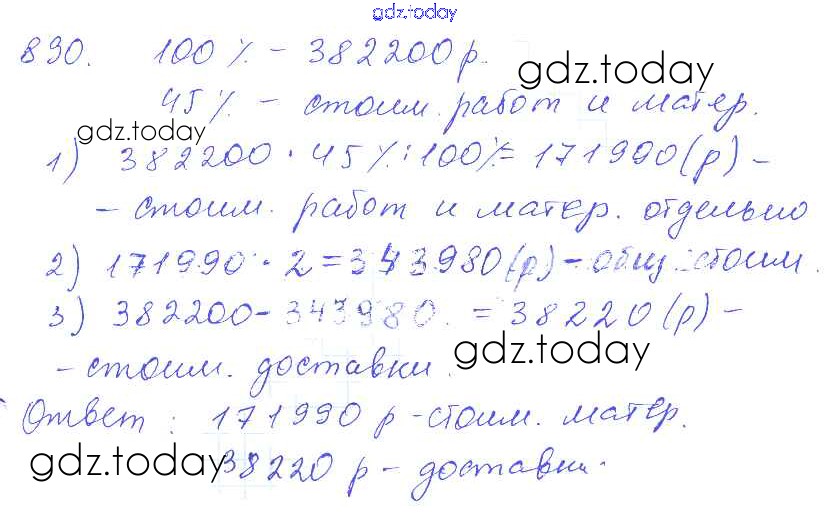 gdz.today
890. 100% - 382200 р.
gdz.today
45% - стоим. работ и матер.
gdz.today
1) 382200 · 45% : 100% = 171990 (р) -
- стоим. работ и матер. отдельно
2) 171990 · 2 = 343980 (р) - общ. стоим.
3) 382200 - 343980 = 38220 (р) -
gdz.today
- стоим. доставки.
Ответ : 171990 р - стоим. матер.
gdz.today
38220 р - доставки.